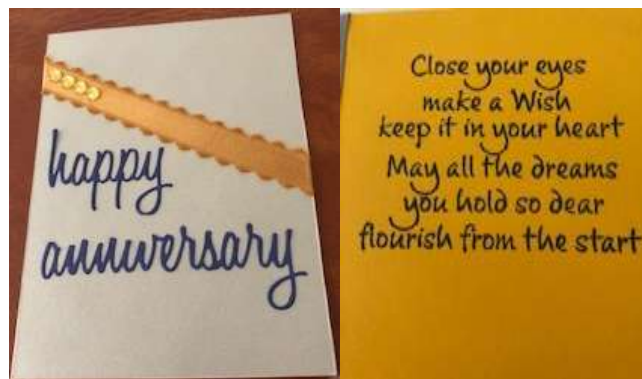 happy
anniversary
Close your eyes
make a Wish
keep it in your heart
May all the dreams
you hold so dear
flourish from the start